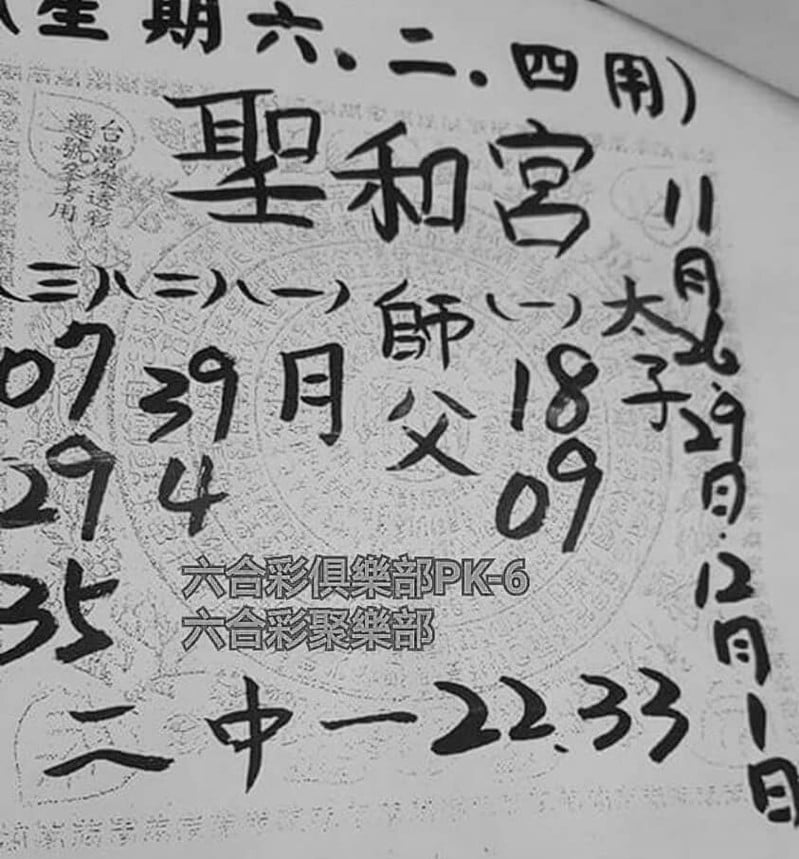 (星期六.二.四用)
聖和宮
台灣樂透彩
選號參考用
11月26.29日.12月1日
太子
(一)
18
09
師父
(一)
月
(二)
39
4
(三)
07
29
35
六合彩俱樂部PK-6
六合彩聚樂部
二中一22.33